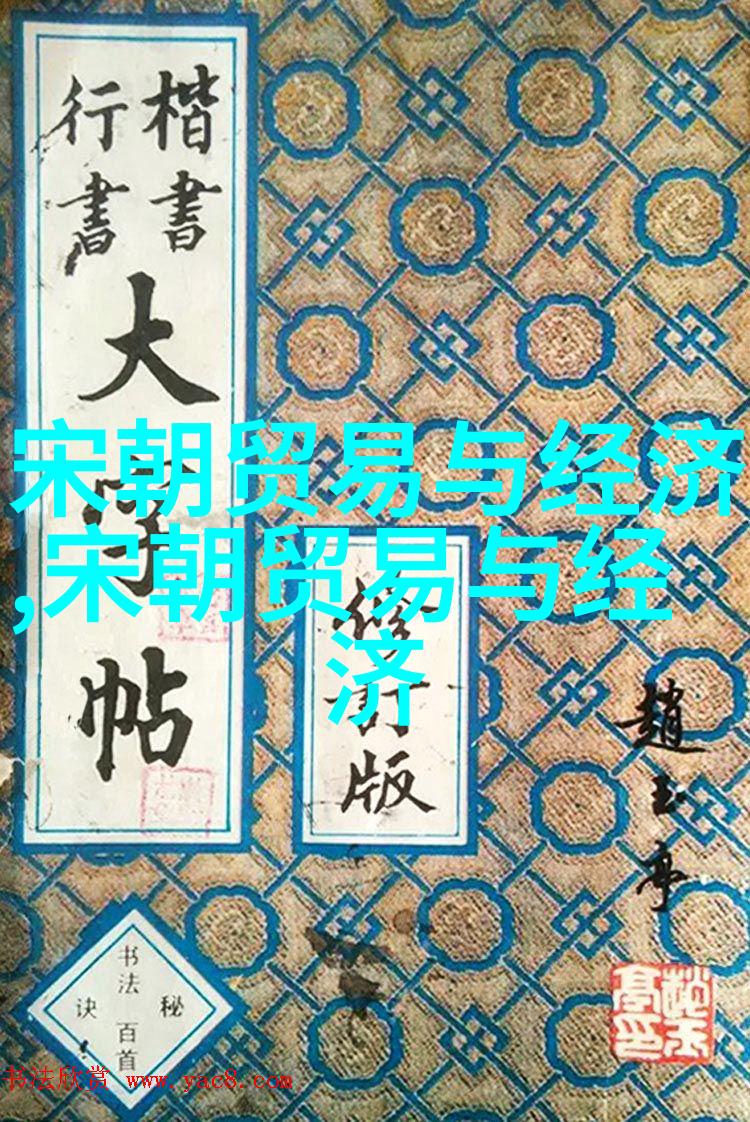 楷書
行書
大字帖
修订版
趙玉亭
书法
百首
秘
诀
宋朝贸易与经济
,宋朝贸易与经
济
书法欣赏 www.yac8.com